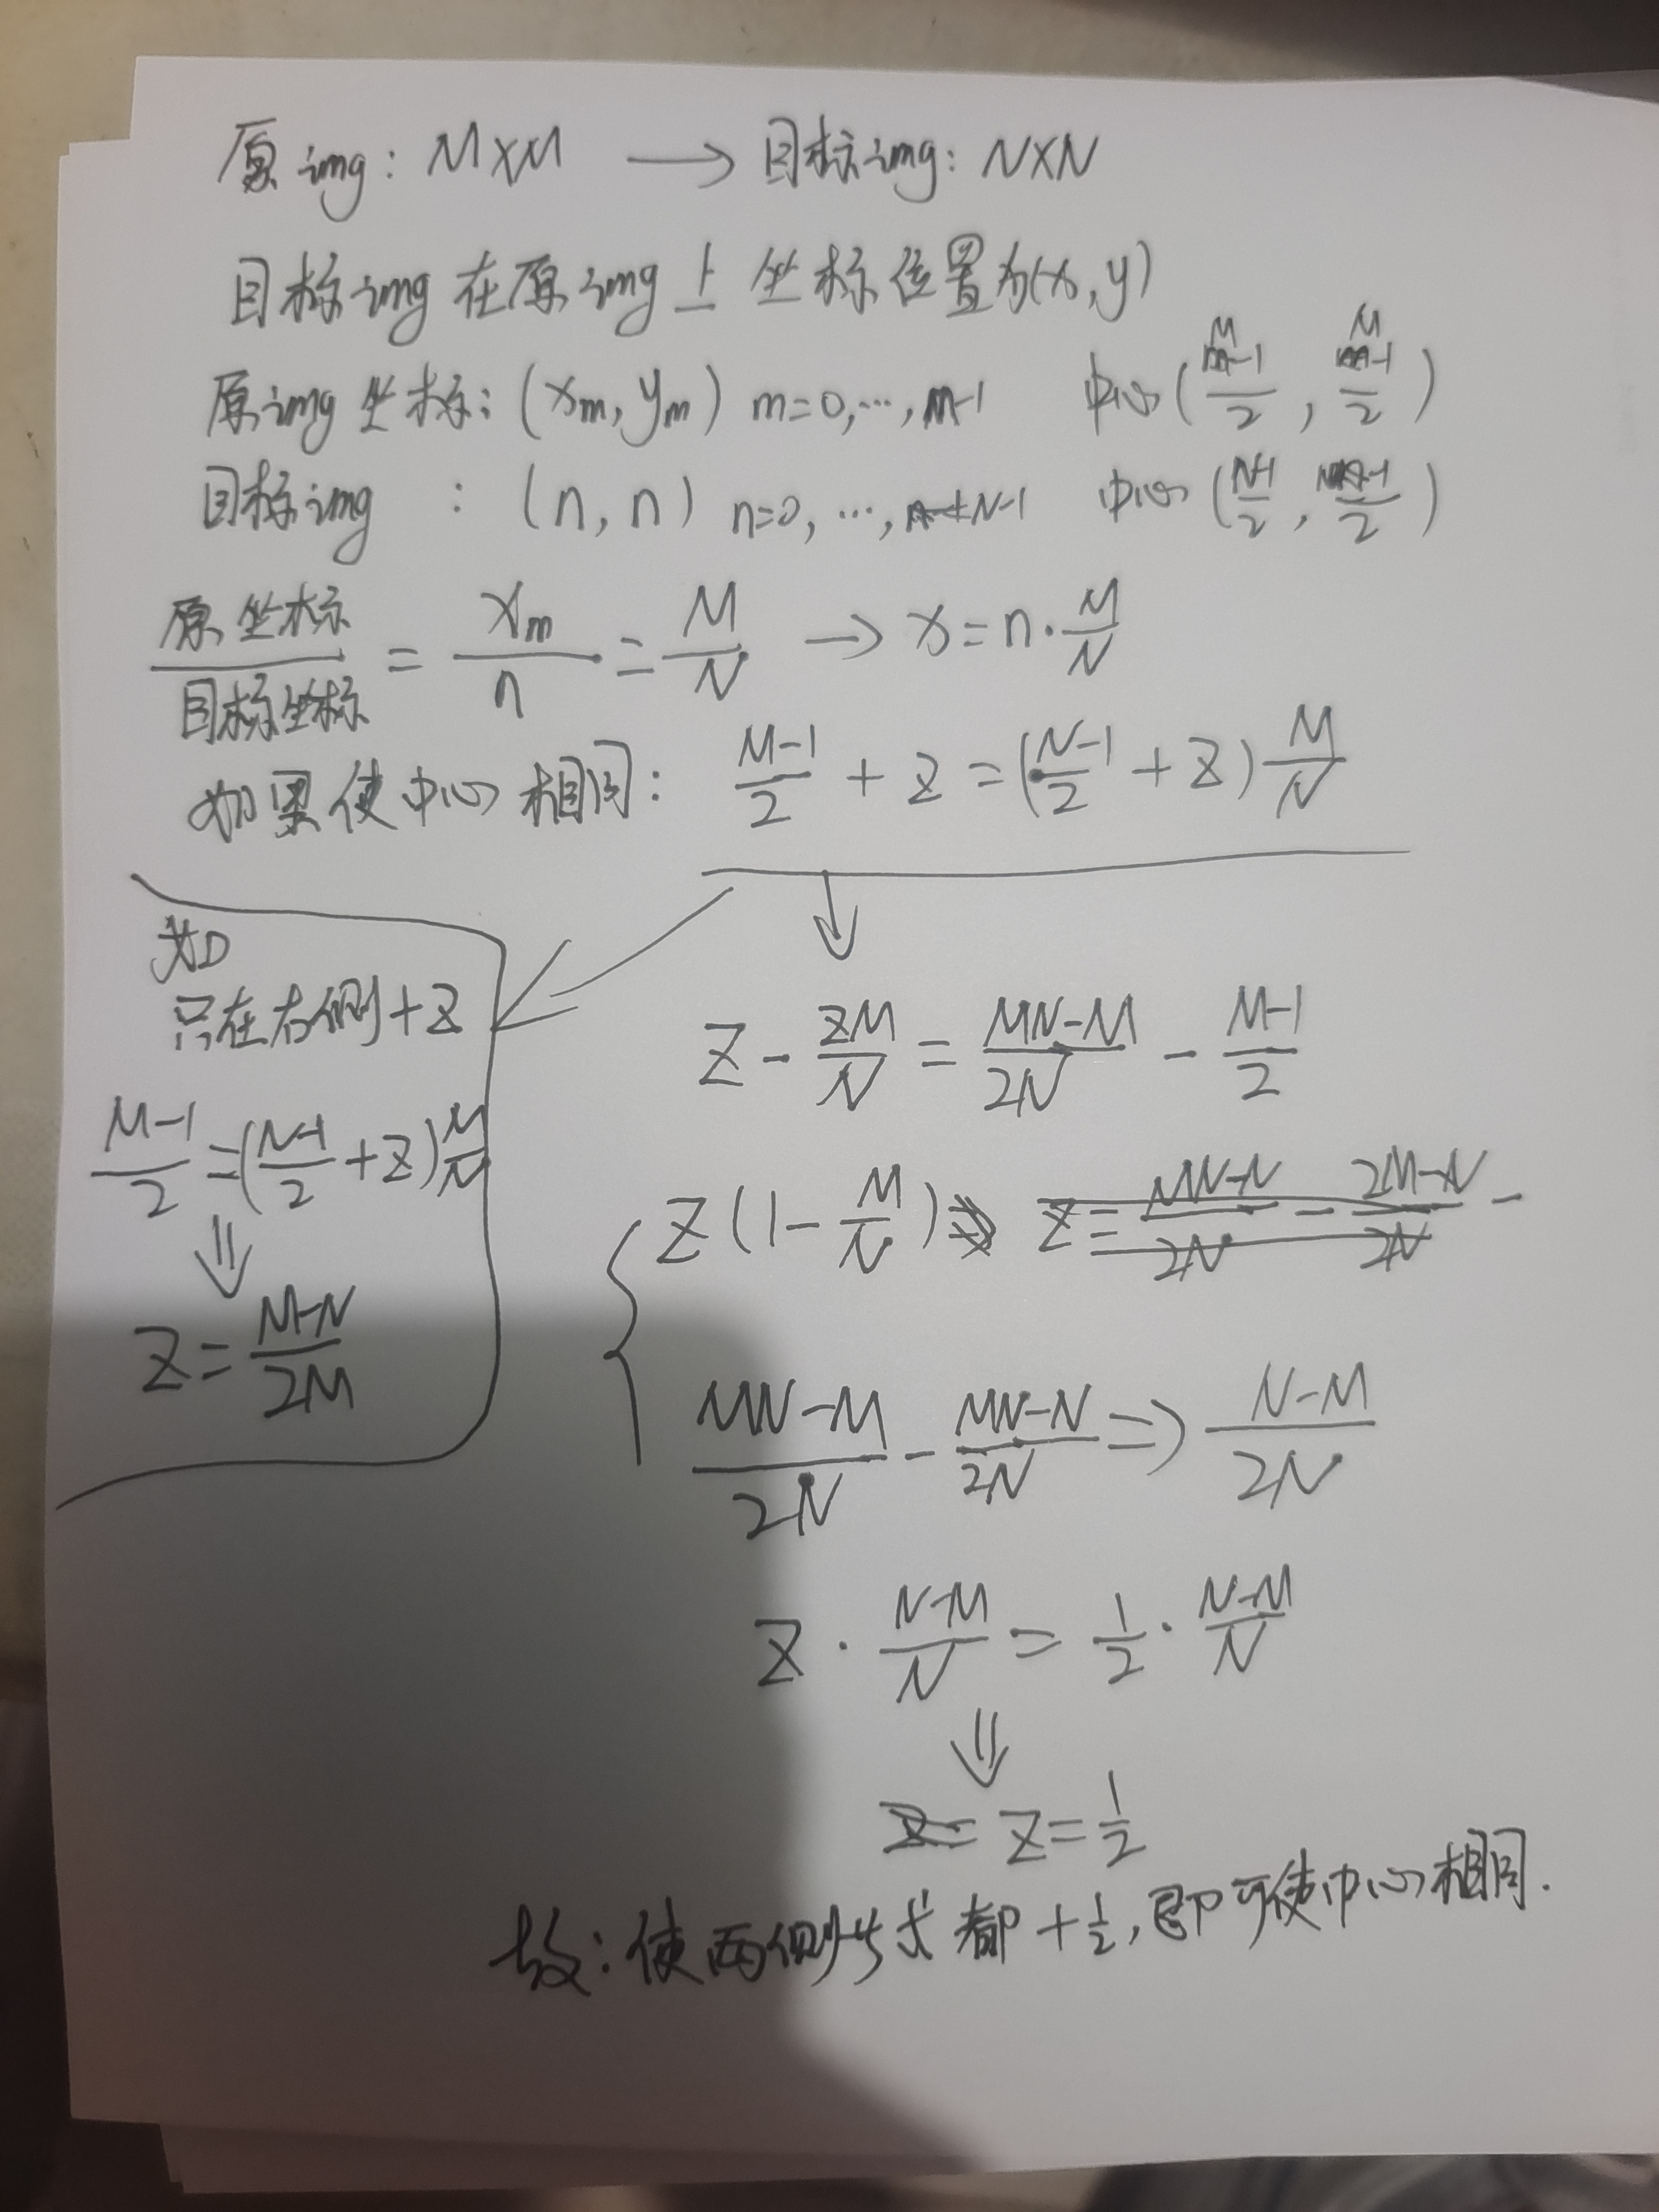 原img: M×M → 目标img: N×N
目标img在原img上坐标位置为(x,y)
原img坐标: (xm, ym) m=0,…,m-1 中心(M-1/2, M-1/2)
目标img : (n, n) n=0,…,N-1 中心(N-1/2, N-1/2)
原坐标/目标坐标 = xm/n = M/N → x=n·M/N
如果使中心相同: M-1/2 + Z = (N-1/2 + Z) M/N
只在右侧+Z
M-1/2 = (N-1/2 + Z) M/N
⇓
Z = M-N/2M
↓
Z - ZM/N = MN-M/2N - M-1/2
Z(1 - M/N)
MN-M/2N - MN-N/2N ⇒ N-M/2N
Z · N-M/N = 1/2 · N-M/N
⇓
Z = 1/2
故: 使两侧都+1/2, 即可使中心相同.